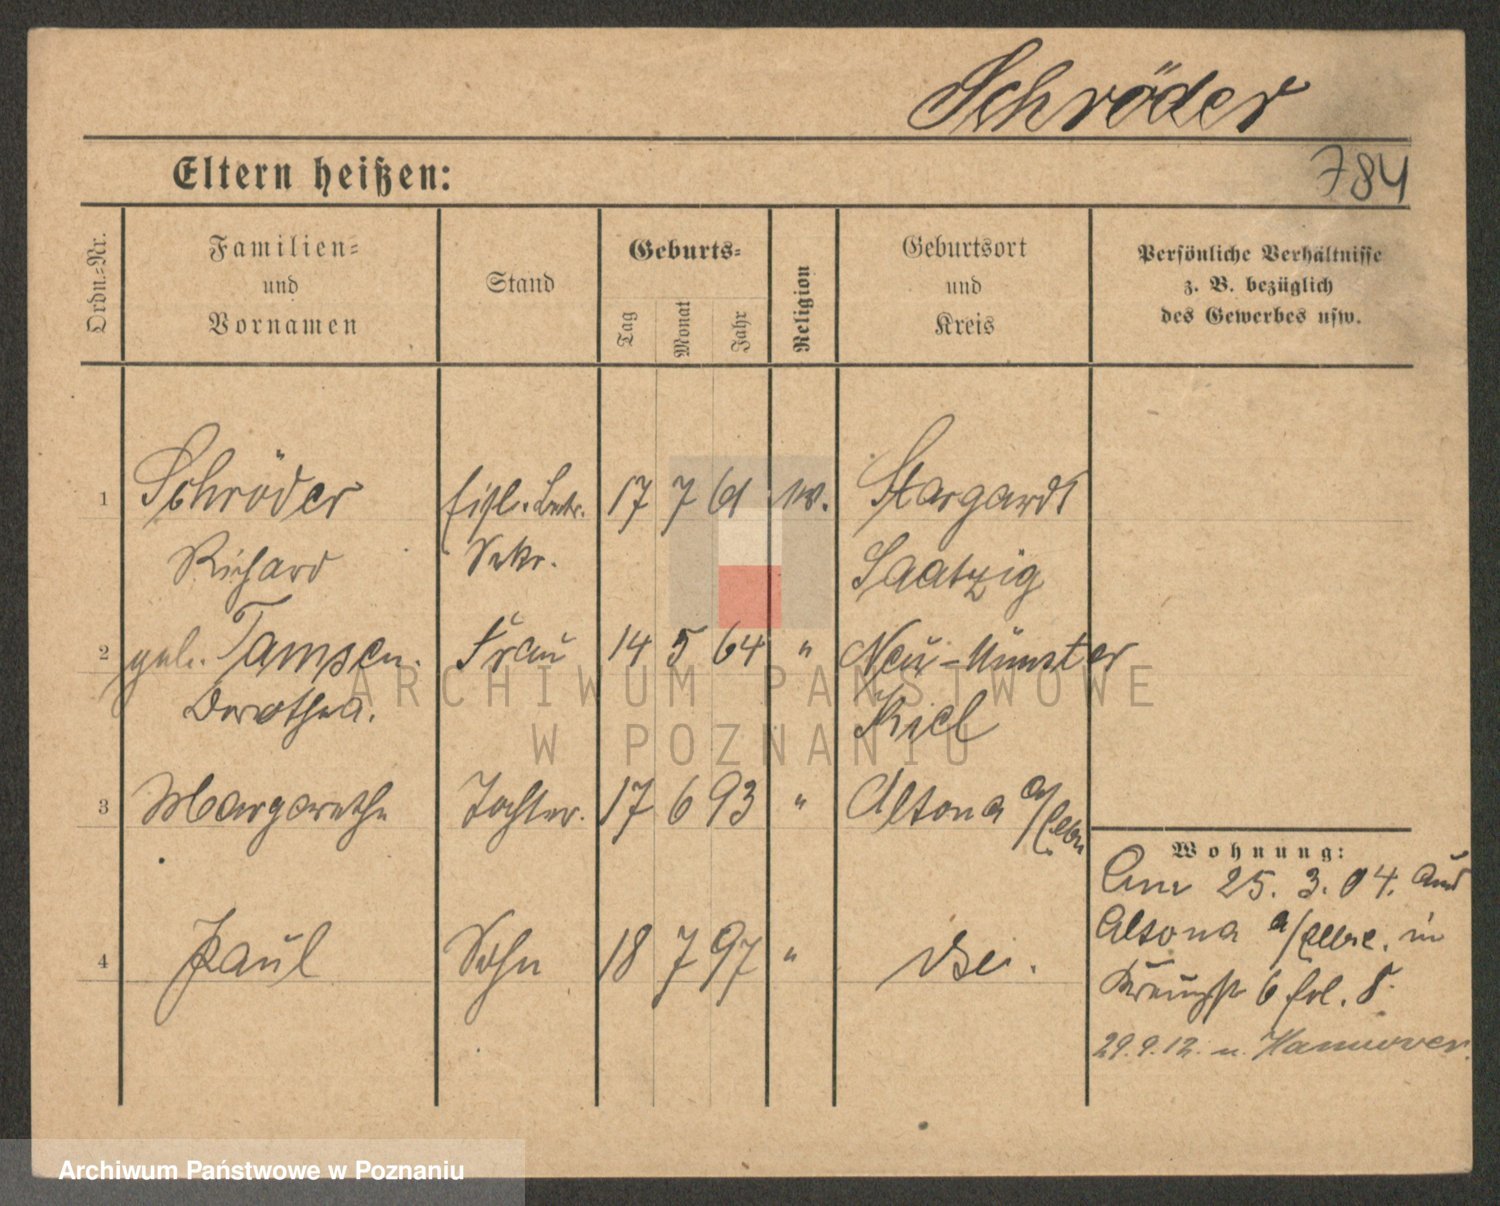 Schröder
784
Eltern heißen:
Ordn.-Nr.
Familien-
und
Vornamen
Stand
Geburts-
Tag
Monat
Jahr
Religion
Geburtsort
und
Kreis
Persönliche Verhältnisse
z. B. bezüglich
des Gewerbes usw.
1 Schröder 17 7 61 Stargardt
Richard Sekr. Saatzig
2 geb. Tamsen. Frau 14 5 64 " Neu-Münster
Dorothea. Kiel
3 Margarethe Tochter. 17 6 93 " Altona a/Elbe
4 Paul Sohn 18 7 97 "
Wohnung:
Am 25. 3. 04. aus
Altona a/Elbe. in
6 8.
29.9.12. n. Hannover.
ARCHIWUM PAŃSTWOWE
W POZNANIU
Archiwum Państwowe w Poznaniu